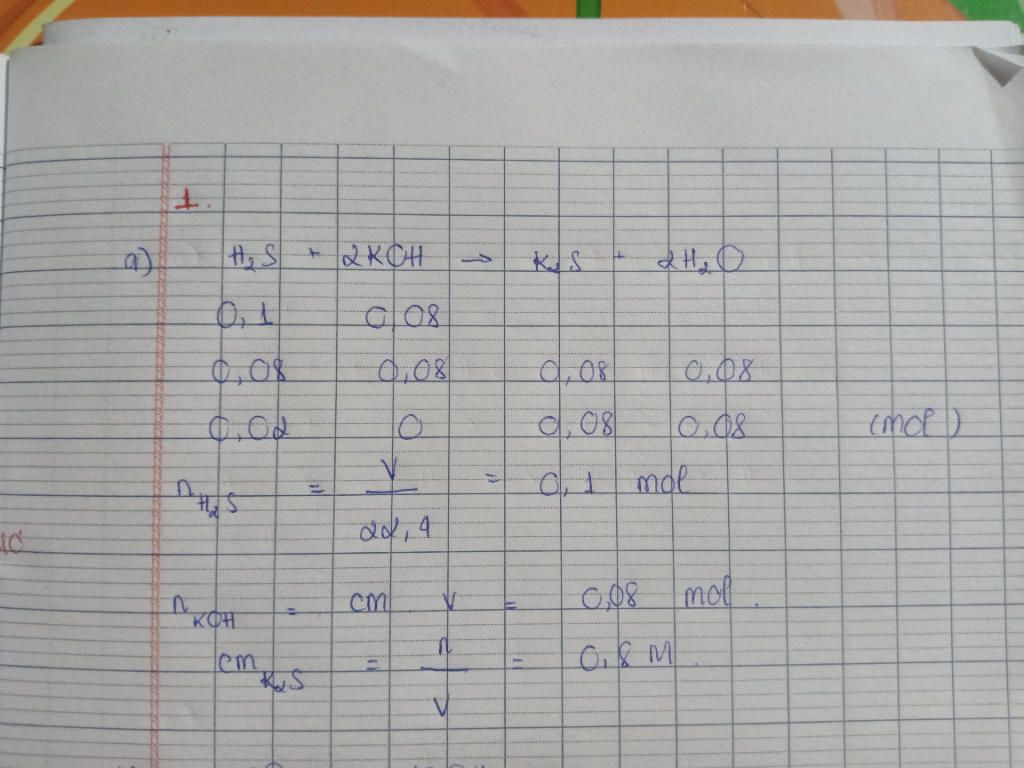 1.
a) H₂S + 2KOH → K₂S + 2H₂O
0,1 0,08
0,08 0,08 0,08 0,08
0,02 0 0,08 0,08 (mol)
n H₂S = V / 22,4 = 0,1 mol
n KOH = cm . V = 0,08 mol.
cm K₂S = n / V = 0,8 M.